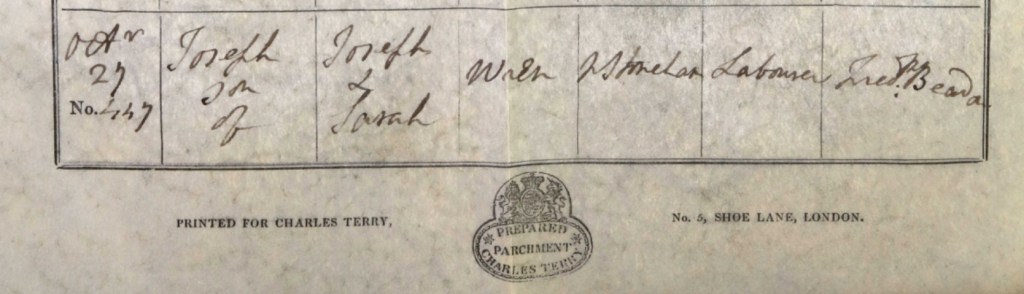 Octr
27
No. 447
Joseph
son
of
Joseph
&
Sarah
Wren
Labourer
Fredk. Beadon
PRINTED FOR CHARLES TERRY,
No. 5, SHOE LANE, LONDON.
PREPARED
PARCHMENT
CHARLES TERRY